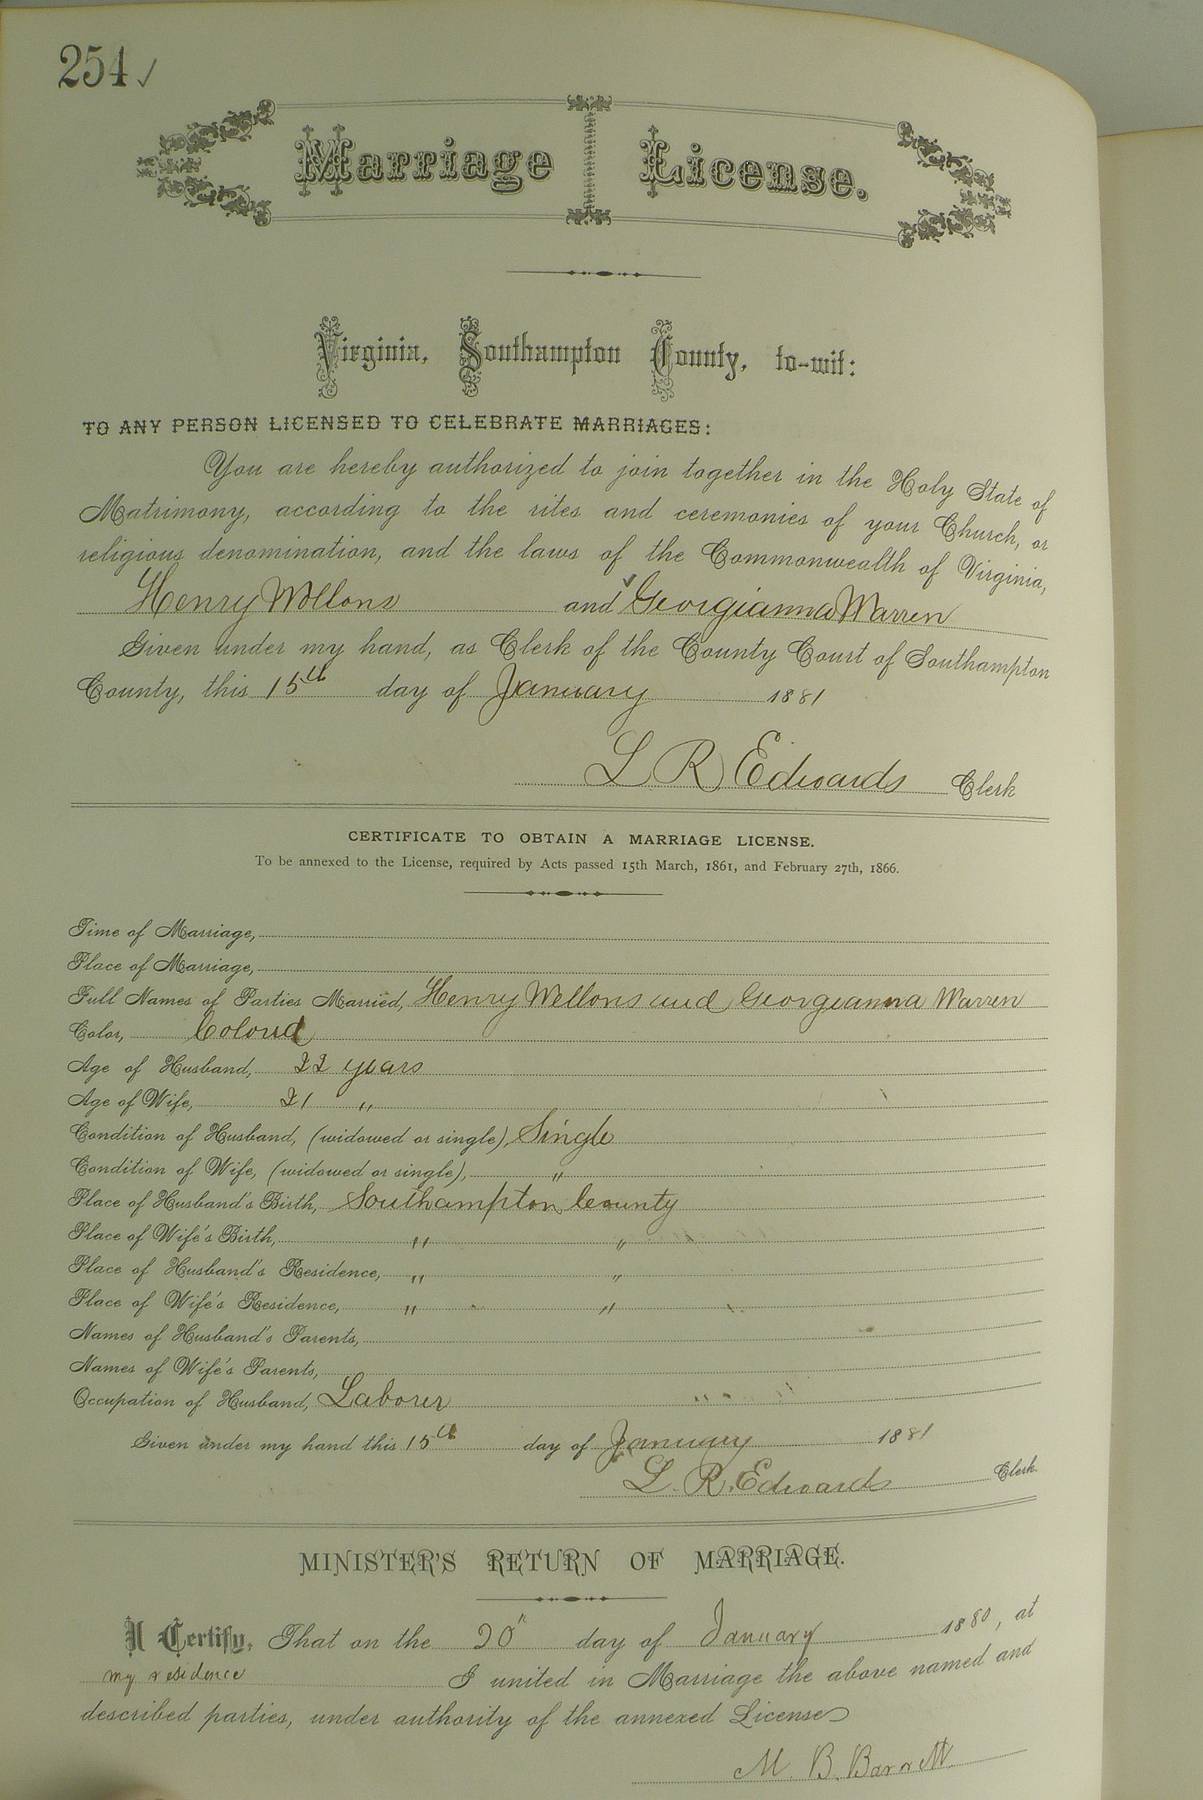 254 ✓
Marriage License.
Virginia, Southampton County, to-wit:
TO ANY PERSON LICENSED TO CELEBRATE MARRIAGES:
You are hereby authorized to join together in the Holy State of
Matrimony, according to the rites and ceremonies of your Church, or
religious denomination, and the laws of the Commonwealth of Virginia,
Henry Wellons and ✓ Georgianna Warren
Given under my hand, as Clerk of the County Court of Southampton
County, this 15th day of January 1881
L R Edwards Clerk
CERTIFICATE TO OBTAIN A MARRIAGE LICENSE.
To be annexed to the License, required by Acts passed 15th March, 1861, and February 27th, 1866.
Time of Marriage,
Place of Marriage,
Full Names of Parties Married, Henry Wellons and Georgeanna Warren
Color, Colord
Age of Husband, 22 years
Age of Wife, 21 "
Condition of Husband, (widowed or single), Single
Condition of Wife, (widowed or single), "
Place of Husband's Birth, Southampton County
Place of Wife's Birth, " "
Place of Husband's Residence, " "
Place of Wife's Residence, " "
Names of Husband's Parents,
Names of Wife's Parents,
Occupation of Husband, Laborer
Given under my hand this 15th day of January 1881
L. R. Edwards Clerk
MINISTER'S RETURN OF MARRIAGE.
I Certify, That on the 20" day of January 1880, at
my residence I united in Marriage the above named and
described parties, under authority of the annexed License
M. B. Barrett